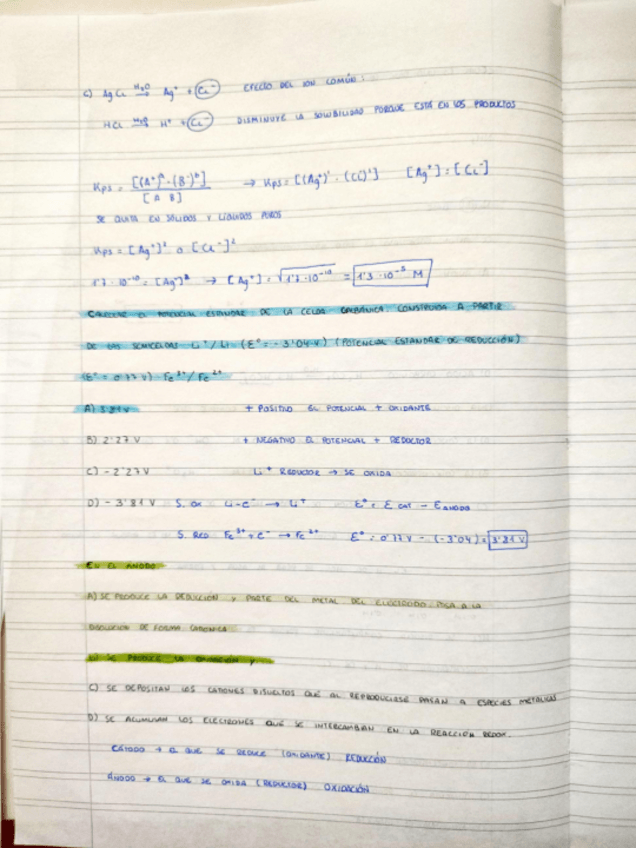 c) AgCl H₂O→ Ag⁺ + Cl⁻ EFECTO DEL ION COMÚN:
HCl H₂O→ H⁺ + Cl⁻ DISMINUYE LA SOLUBILIDAD PORQUE ESTÁ EN LOS PRODUCTOS
Kps = [(A⁺)ᵃ·(B⁻)ᵇ] / [A B] → Kps = [(Ag⁺)¹·(Cl⁻)¹] [Ag⁺] = [Cl⁻]
SE QUITA EN SÓLIDOS Y LÍQUIDOS PUROS
Kps = [Ag⁺]² o [Cl⁻]²
1'7·10⁻¹⁰ = [Ag⁺]² → [Ag⁺] = √1'7·10⁻¹⁰ = 1'3·10⁻⁵ M
CALCULAR EL POTENCIAL ESTANDAR DE LA CELDA GALVÁNICA CONSTRUIDA A PARTIR
DE LAS SEMICELDAS Li⁺/Li (E° = -3'04 V) (POTENCIAL ESTANDAR DE REDUCCIÓN)
(E° = 0'77 V) Fe³⁺/Fe²⁺
A) 3'81 V + POSITIVO EL POTENCIAL + OXIDANTE
B) 2'27 V + NEGATIVO EL POTENCIAL + REDUCTOR
C) -2'27 V Li⁺ REDUCTOR → SE OXIDA
D) -3'81 V S. OX Li - e⁻ → Li⁺ E° = E CAT - E ANODO
S. RED Fe³⁺ + e⁻ → Fe²⁺ E° = 0'77 V - (-3'04) = 3'81 V
EN EL ÁNODO
A) SE PRODUCE LA REDUCCIÓN Y PARTE DEL METAL DEL ELECTRODO PASA A LA
DISOLUCION DE FORMA CATIONICA
B) SE PRODUCE LA OXIDACIÓN Y
C) SE DEPOSITAN LOS CATIONES DISUELTOS QUE AL REPRODUCIRSE PASAN A ESPECIES METALICAS
D) SE ACUMULAN LOS ELECTRONES QUE SE INTERCAMBIAN EN LA REACCIÓN REDOX.
CÁTODO → EL QUE SE REDUCE (OXIDANTE) REDUCCIÓN
ÁNODO → EL QUE SE OXIDA (REDUCTOR) OXIDACIÓN